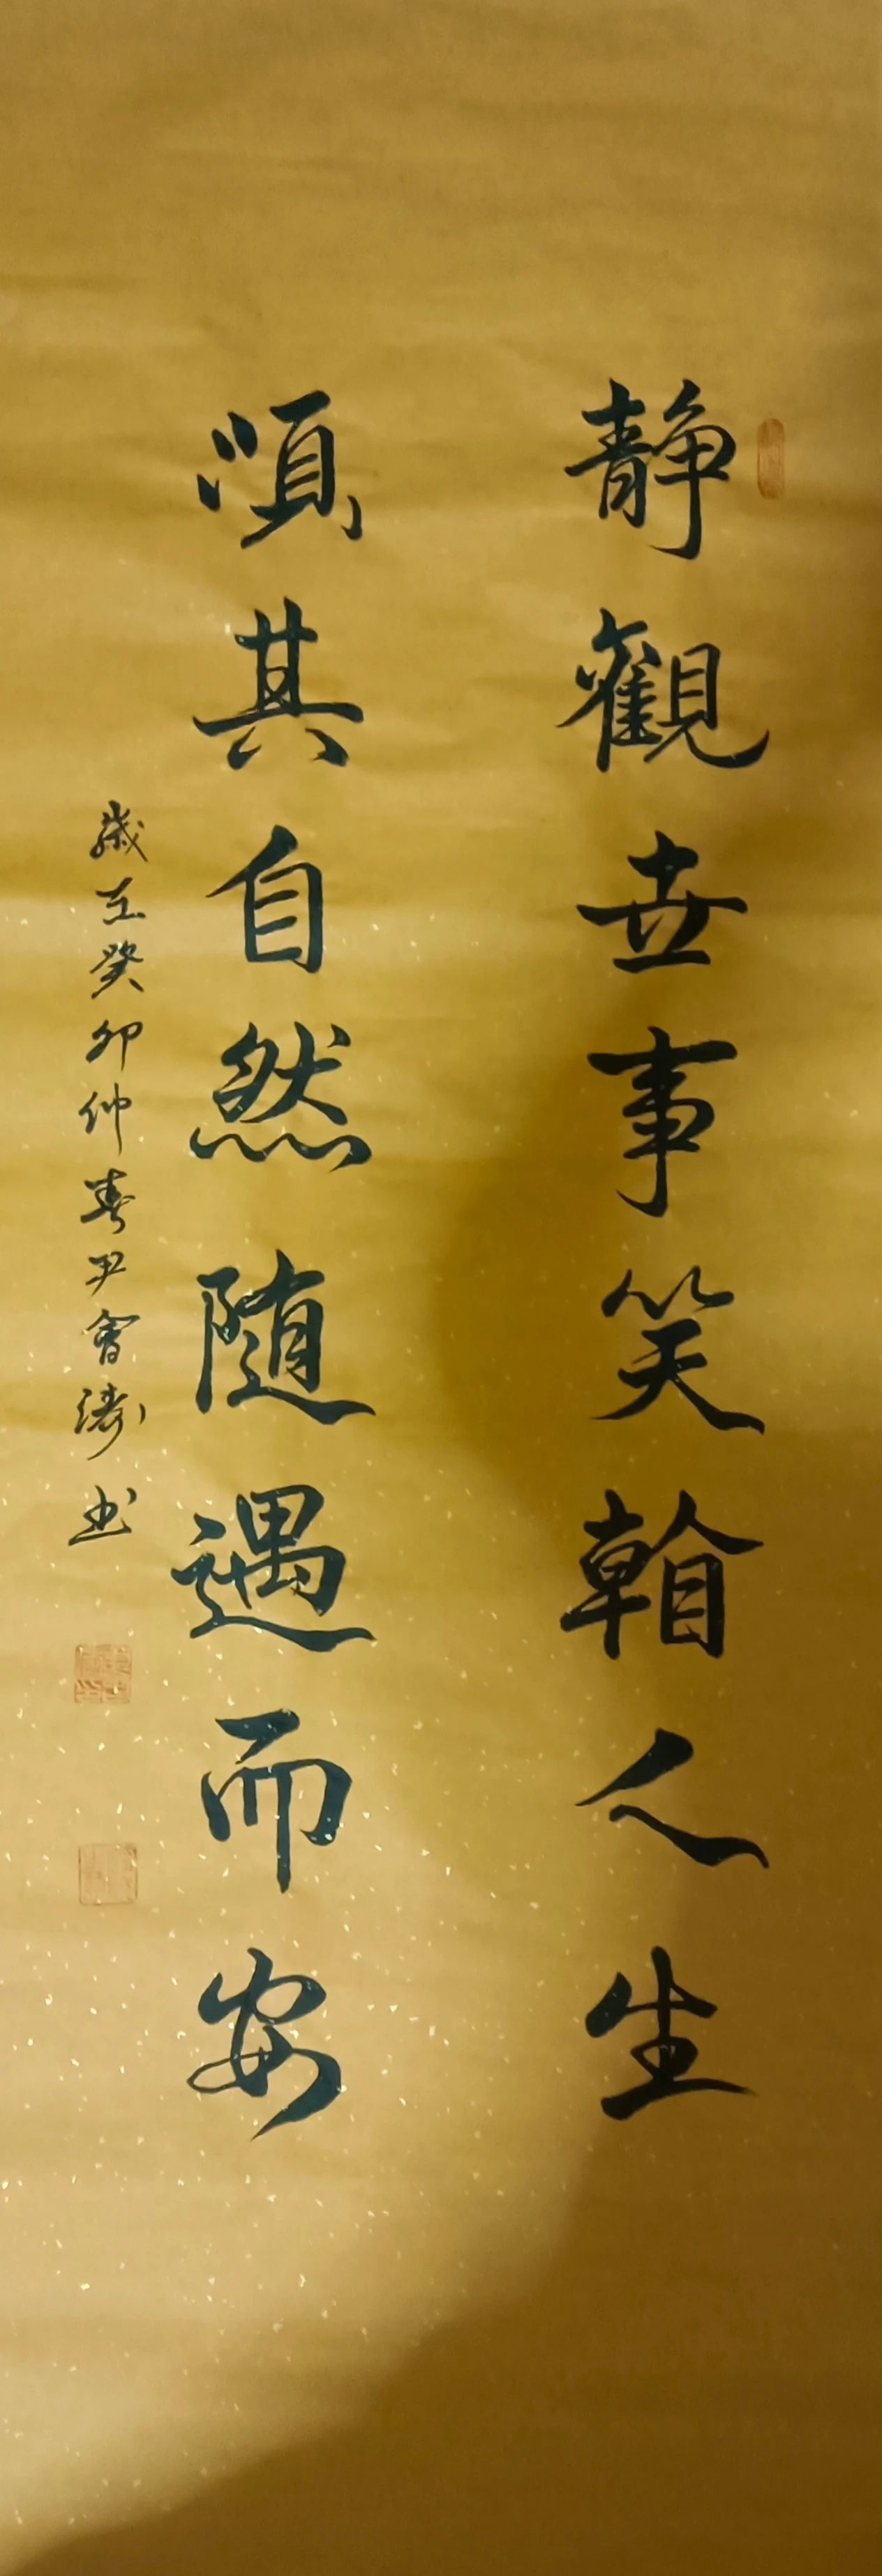 静觀世事笑看人生
順其自然随遇而安
歲在癸卯仲春尹會濤书